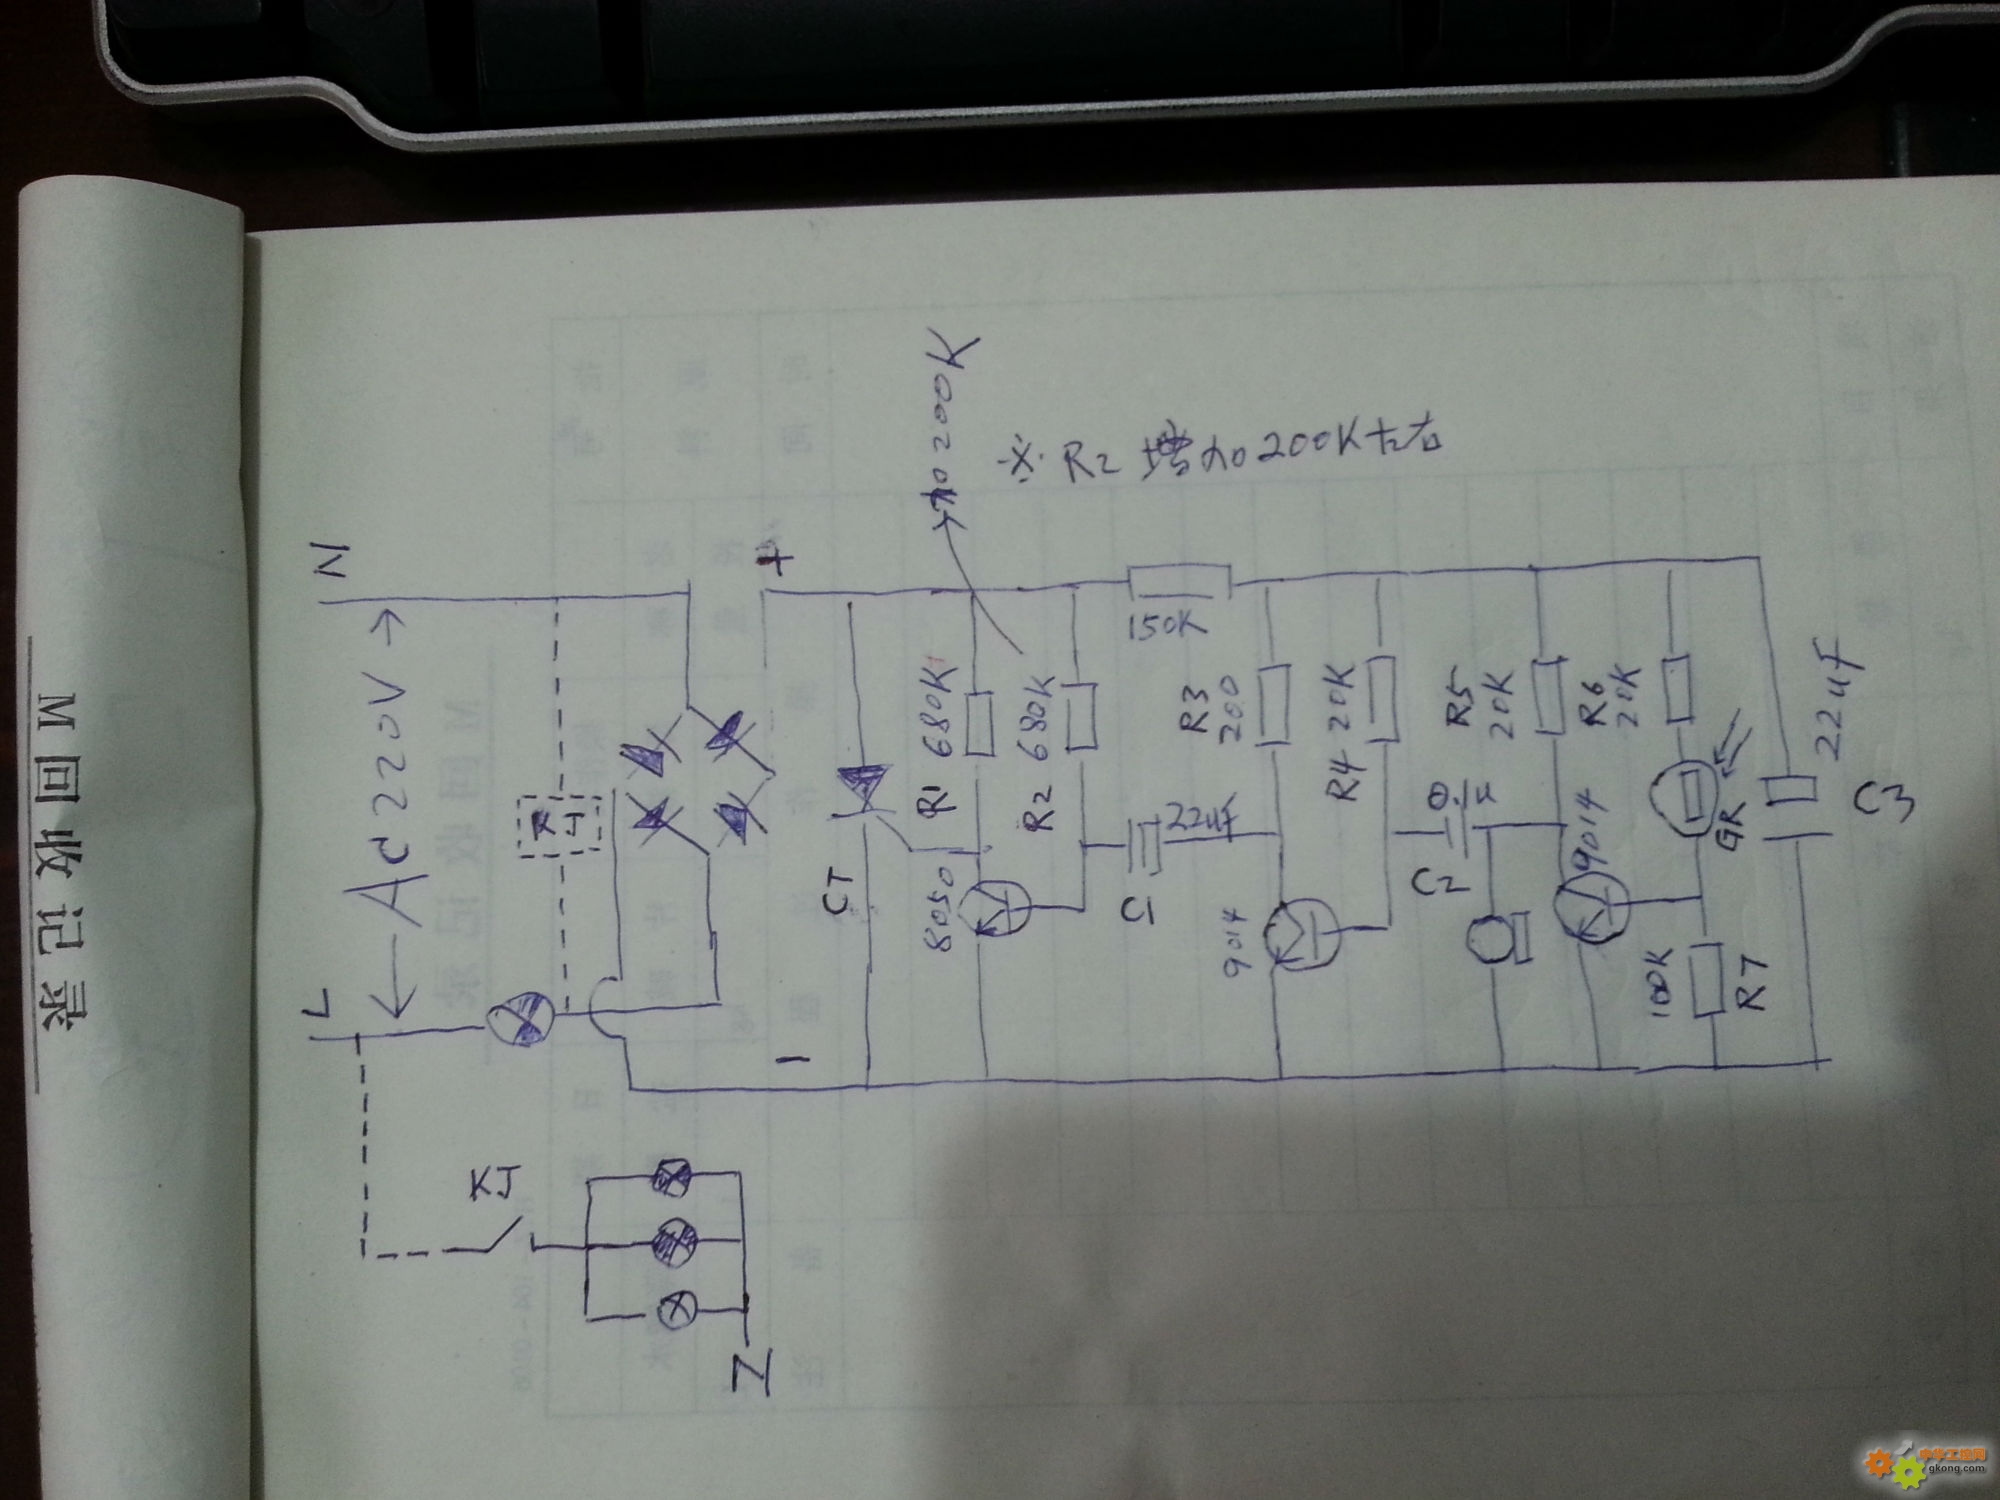 M回收记录
N
AC220V
L
KJ
KJ
N
+
-
CT
R1 680K
加200K
※ R2 增加200K左右
R2 680K
8050
150K
C1
22uF
R3 200
9014
R4 20K
0.1u
C2
R5 20K
9014
R6 20K
GR
100K
R7
22uF
C3
中华工控网
gkong.com